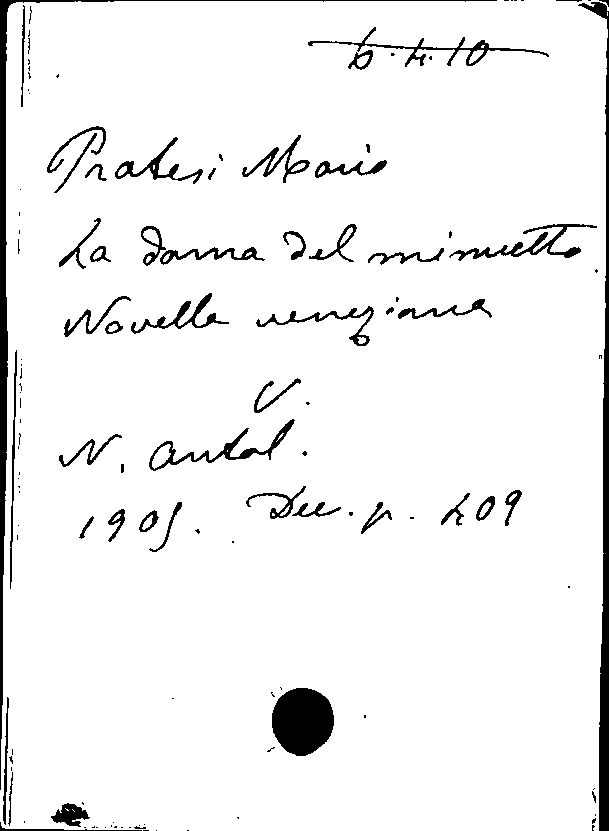 6.4.10
Pratesi Mario
La dama del minuetto
Novella veneziana
V.
N. Antol.
1905. Dec. p. 409